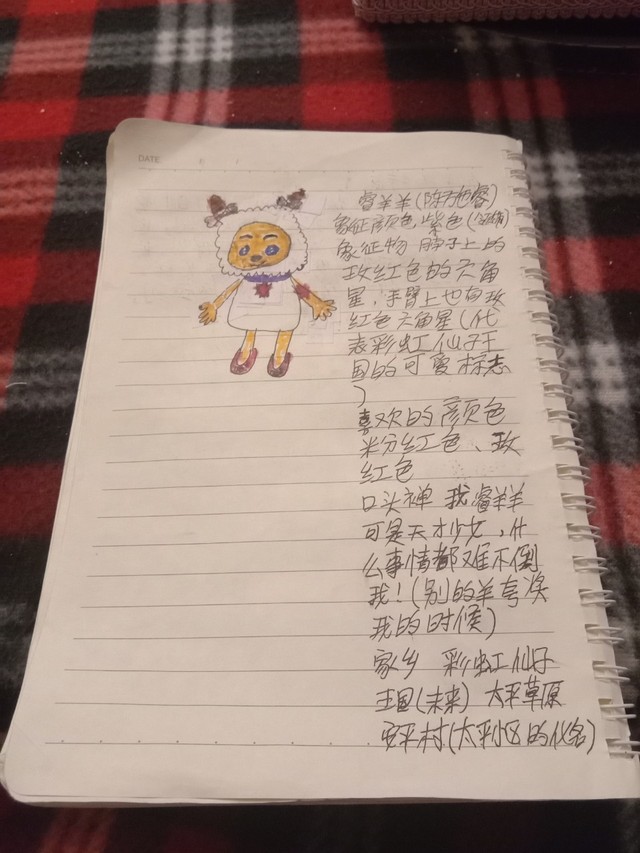 DATE
睿羊羊(陈
象征颜色,紫色(
象征物 脖子上的
玫红色的六角
星,手臂上也有玫
红色六角星(代
表彩虹仙子王
国的可爱标志
)
喜欢的颜色
粉红色、玫
红色
口头禅 我睿羊羊
可是天才少女,什
么事情都难不倒
我!(别的羊夸奖
我的时候)
家乡 彩虹仙子
王国(未来) 太平草原
安平村(太平小区的化名)